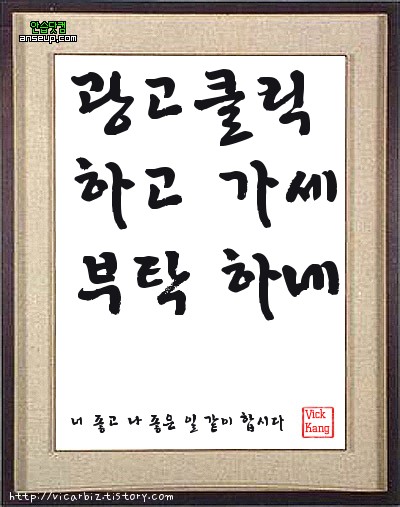 안습닷컴
anseup.com
광고클릭
하고 가세
부탁 하네
너 좋고 나 좋은 일 같이 합시다
Vick
Kang
http://vicarbiz.tistory.com